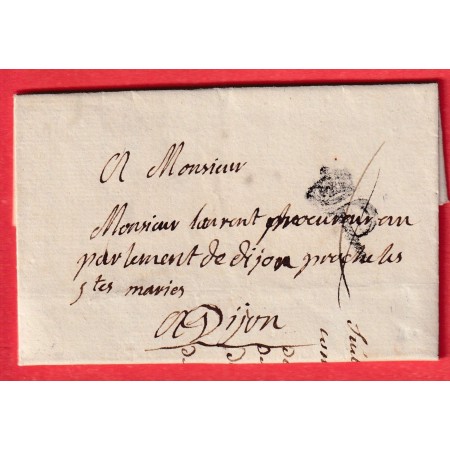 A Monsieur
Monsieur laurent procureur au
parlement de dijon proche les
stes maries
A Dijon